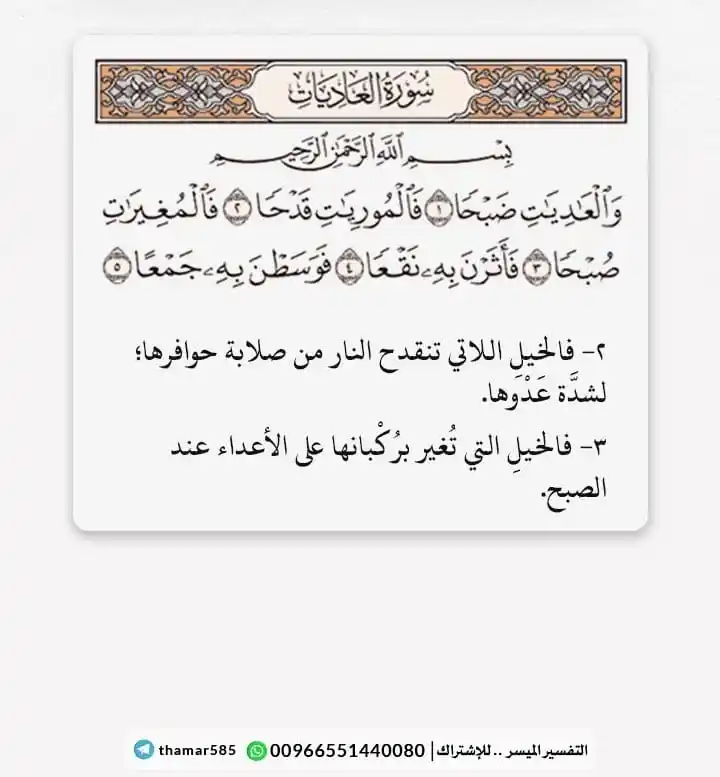 سُورَةُ العَادِيَاتِ
بِسْمِ ٱللَّهِ ٱلرَّحْمَٰنِ ٱلرَّحِيمِ
وَٱلْعَٰدِيَٰتِ ضَبْحًا ١ فَٱلْمُورِيَٰتِ قَدْحًا ٢ فَٱلْمُغِيرَٰتِ
صُبْحًا ٣ فَأَثَرْنَ بِهِۦ نَقْعًا ٤ فَوَسَطْنَ بِهِۦ جَمْعًا ٥
٢- فالخيلِ اللاتي تنقدح النار من صلابة حوافرها؛
لشدَّة عَدْوها.
٣- فالخيلِ التي تُغير برُكْبانها على الأعداء عند
الصبح.
التفسير الميسر .. للإشتراك | 00966551440080 thamar585